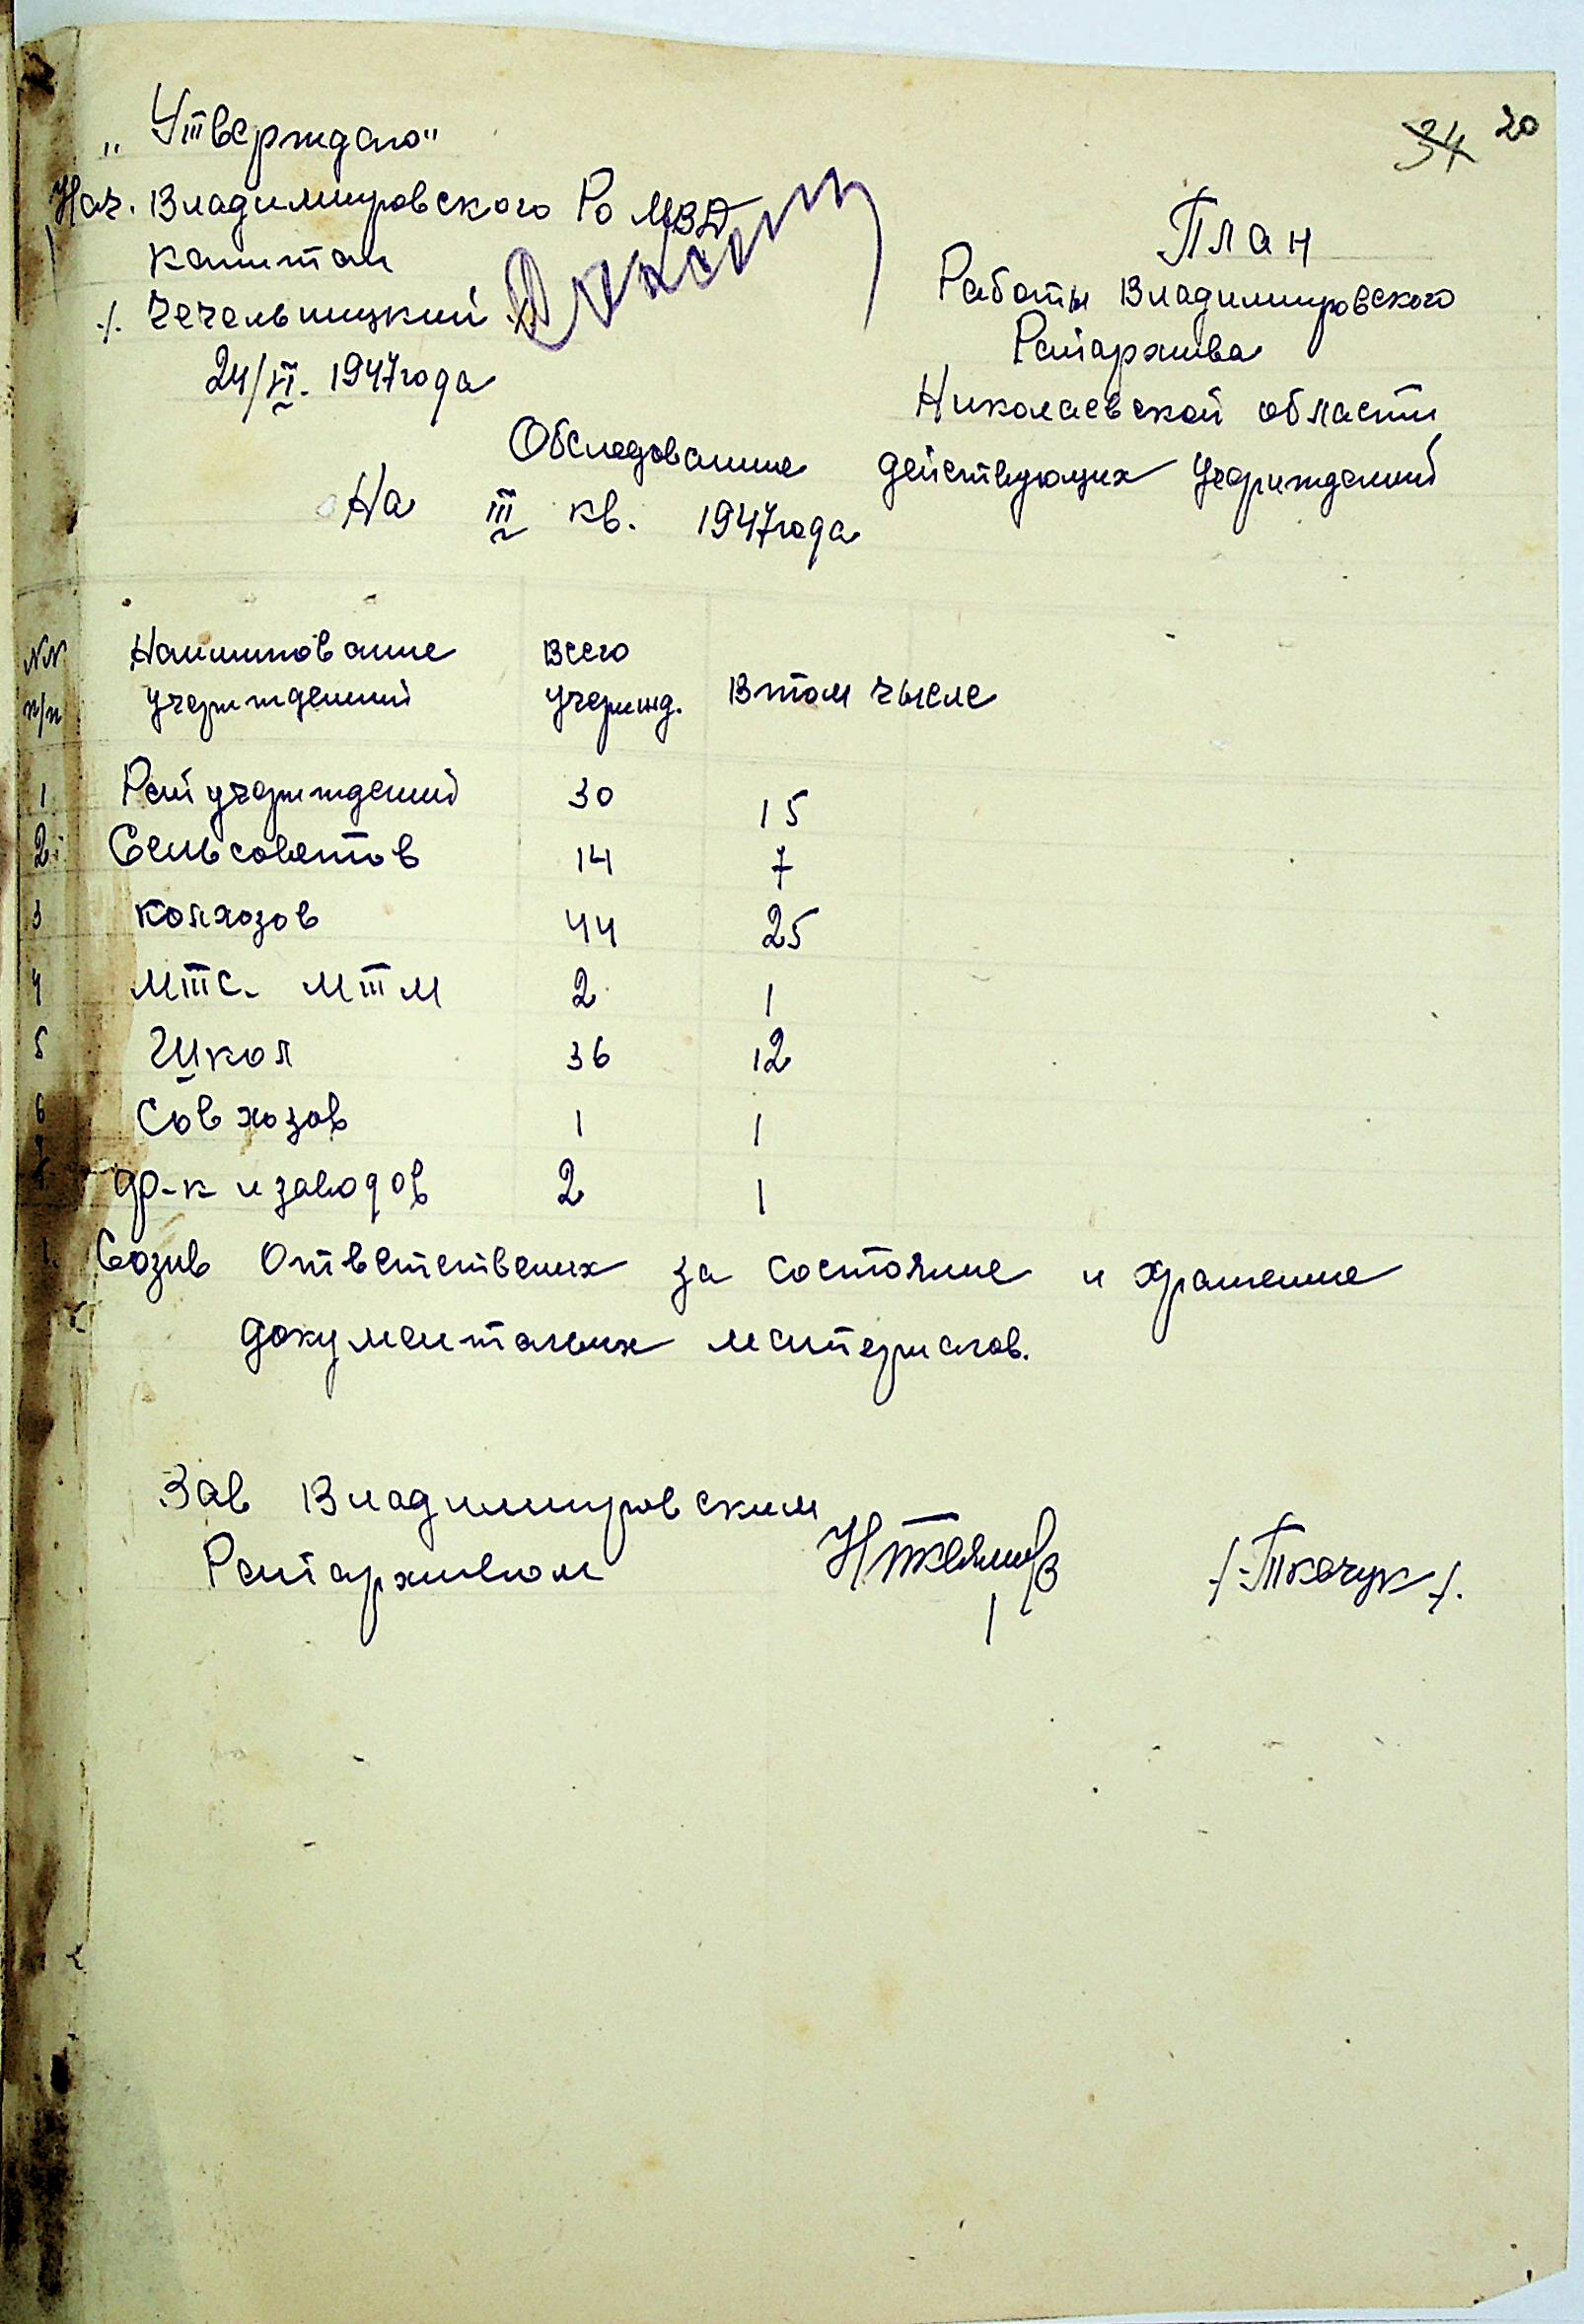 34 20
„Утверждаю"
Нач. Владимировского Ро МВД
капитан
/. Чечельницкий ./
24/VI. 1947года
План
Работы Владимировского
Райархива
Николаевской области
Обследование действующих учериждений
На III кв. 1947года
NN п/п
Наиминование учериждений
Всего учерижд.
В том числе
1 Райучериждений 30 15
2. Сельсоветов 14 7
3 колхозов 44 25
4 МТС. МТМ 2 1
5 Школ 36 12
6 Совхозов 1 1
7 ф-к и заводов 2 1
1. Созыв Ответственых за состояние и хранение
документальных материалов.
Зав Владимировским
Райархивом /-Ткачук-/.